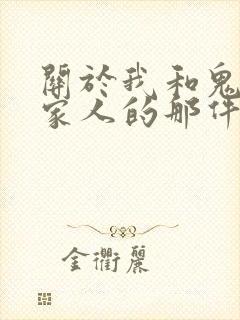 關於我和鬼
家人的那件
金衢麗